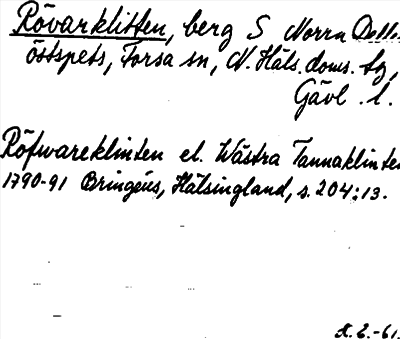 Rövarklitten, berg S Norra Dellens
östspets, Forsa sn, N. Häls. doms. tg,
Gävl. l.
Röfwareklinten el. Wästra Tannaklinten
1790-91 Bringéus, Hälsingland, s. 204:13.